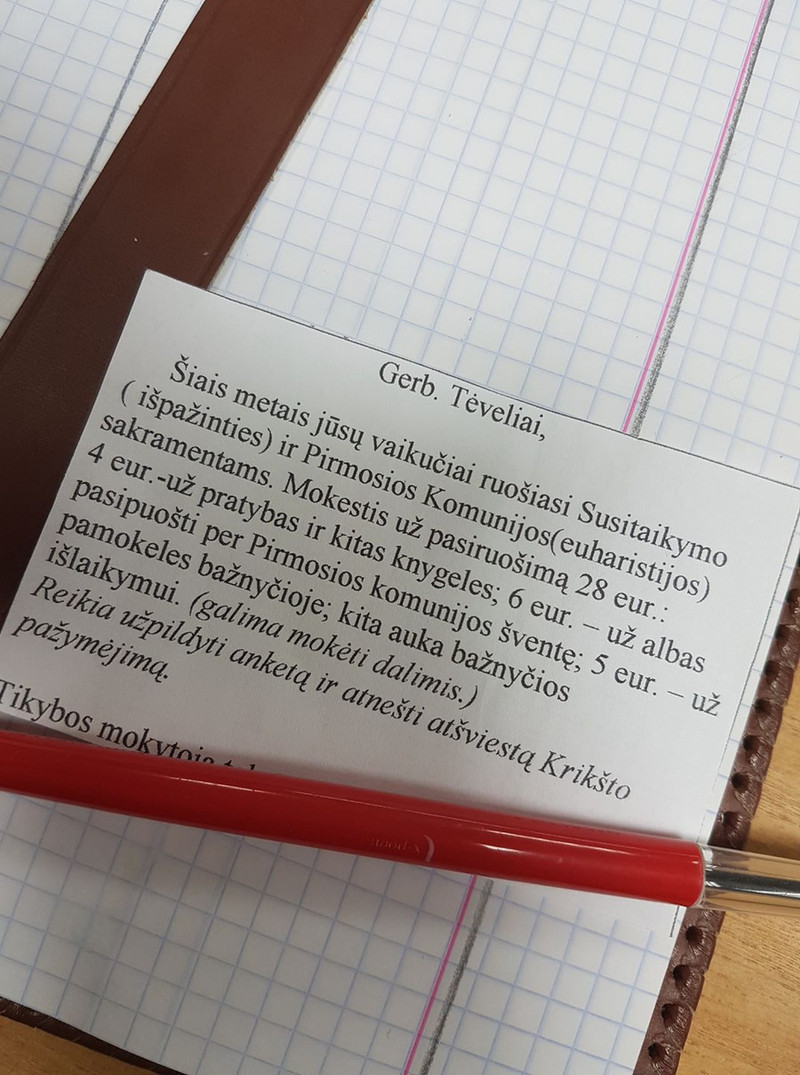 Gerb. Tėveliai,
Šiais metais jūsų vaikučiai ruošiasi Susitaikymo
( išpažinties) ir Pirmosios Komunijos(euharistijos)
sakramentams. Mokestis už pasiruošimą 28 eur.:
4 eur.-už pratybas ir kitas knygeles; 6 eur. – už albas
pasipuošti per Pirmosios komunijos šventę; 5 eur. – už
pamokeles bažnyčioje; kita auka bažnyčios
išlaikymui. (galima mokėti dalimis.)
Reikia užpildyti anketą ir atnešti atšviestą Krikšto
pažymėjimą.
Tikybos mokytoja